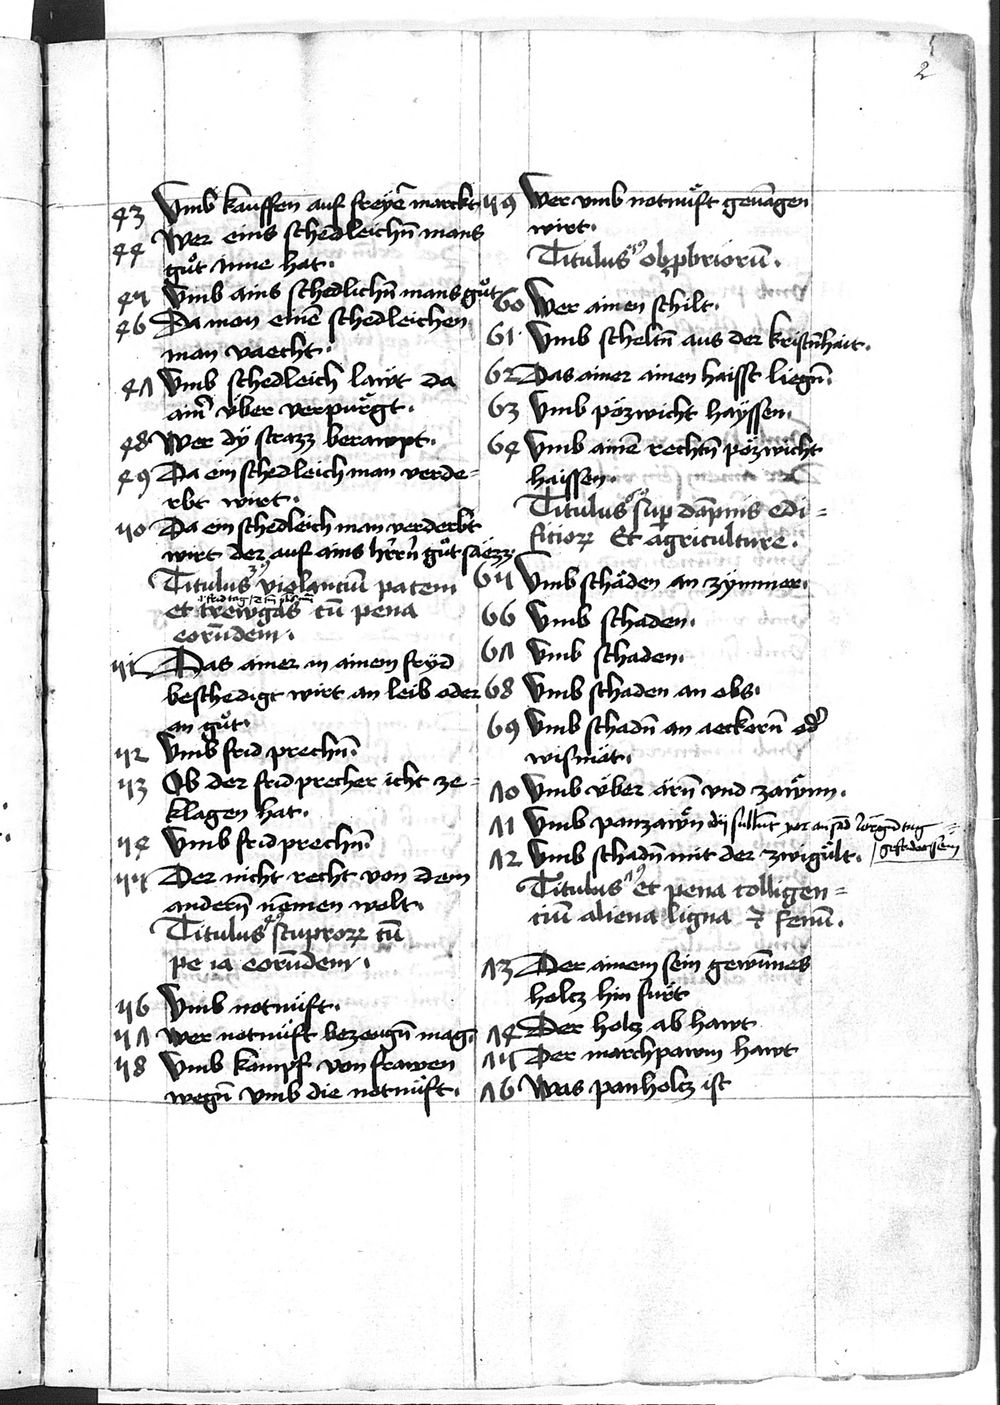 2
43 Vmb kauffen auf freyē marckt
44 Wer eins schedleichn̄ mans
gůt Inne hat.
45 Vmb ains schedlichn̄ mans gůt
46 Da man einē schedleichen
man vaecht.
47 Vmb schedleich lawt da
aim̄ vber verpürgt.
48 Wer dÿ strazz berawpt.
49 Da ein schedleich man verde=
rbt wirt.
50 Da ein schedleich man verderbt
wirt der auf ains hr̄rn̄ gůt säezz
Titulus 3⁹ violanciū pacem
et trewgas cū pena
eorūdem.
51 Das ainer in ainem fryd
beschedigt wirt an leib oder
an gůt.
52 Vmb frid prechn̄.
53 Ob der fridprecher icht ze=
klagen hat.
54 Vmb fridprechn̄.
55 Der nicht recht von dem
andern̄ nemen wolt.
Titulus 4⁹ stuproꝝ cū
pena eorūdem.
56 Vmb notnüft.
57 Wer notnüft bezeugn̄ mag.
58 Vmb kampf von frawen
wegn̄ vmb die notnüft.
59 Wer vmb notnüft geuāgen
wirt.
Titulus 5⁹ obpbriorū.
60 Wer ainen schilt.
61 Vmb scheltn̄ aus der kristn̄hait.
62 Das ainer ainen haisst liegn̄.
63 Vmb pözwicht hayssen.
64 Vmb ainē rechtn̄ pözwicht
haissen.
Titulus 6⁹ sup̄ dāpnis edi=
ficioꝝ Et agriculture.
65 Vmb schäden an zymmer.
66 Vmb schaden.
67 Vmb schaden.
68 Vmb schaden an obs.
69 Vmb schadn̄ an aeckern̄ od̄
wismät.
70 Vmb über ärn̄ vnd zäwnn.
71 Vmb panzäwn̄ dÿ sullnt
72 Vmb schadn̄ mit der zwigült.
Titulus 7⁹ et pena colligen=
ciū aliena ligna ⁊ fenū.
73 Der ainem sein gewūnes
holcz hin fürt
74 Der holcz ab hawt
75 Der marchpawm hawt
76 Was panholcz ist